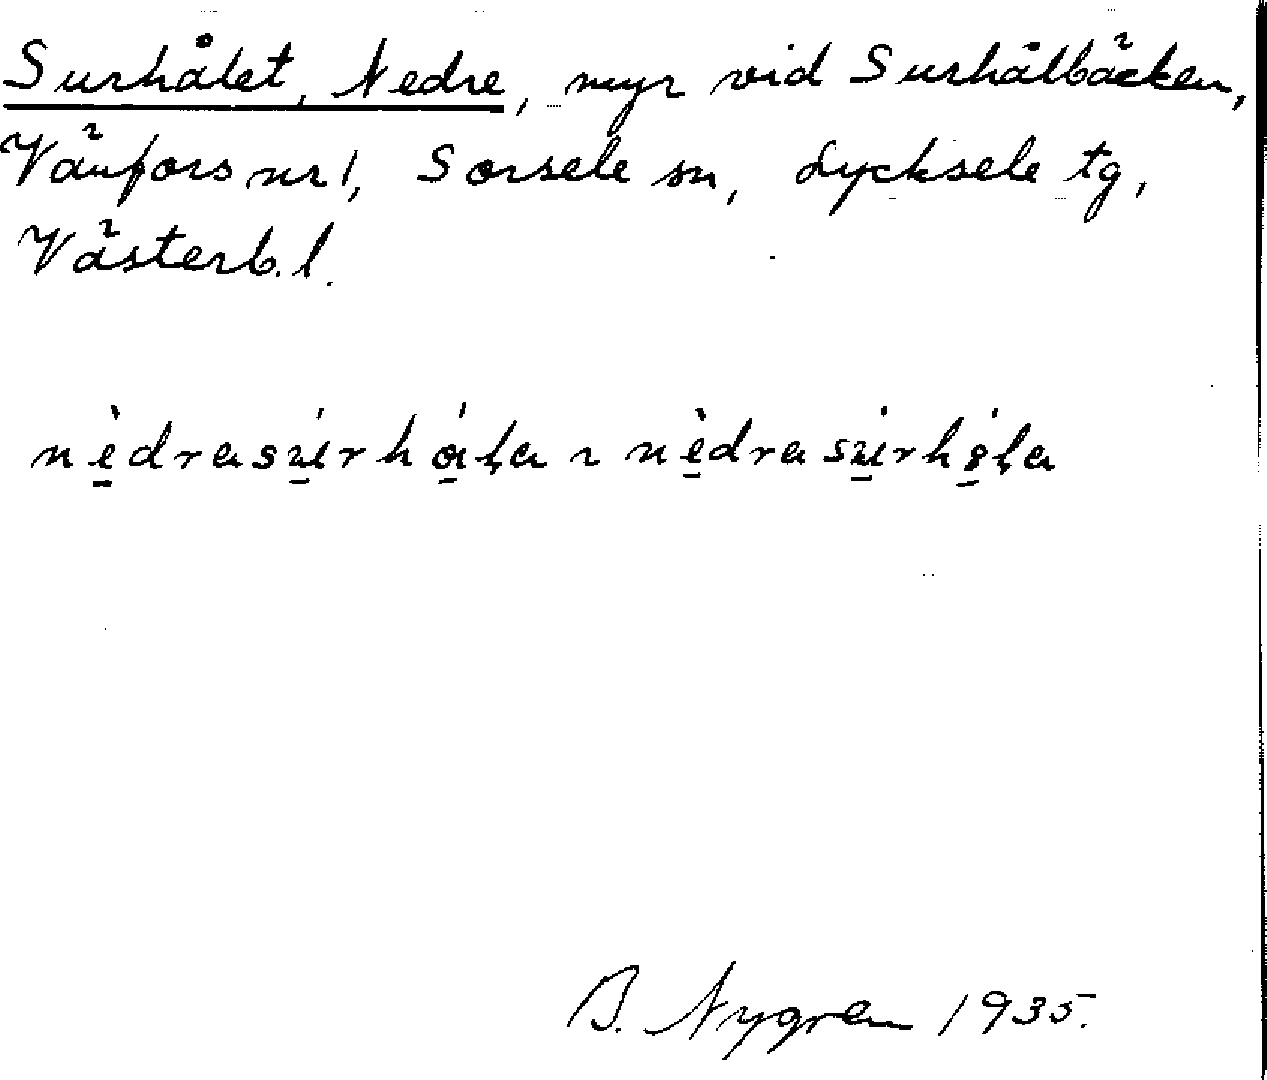 Surhålet, Nedre, myr vid Surhålbäcken,
Vänfors nr 1, Sorsele sn, Lycksele tg,
Västerb. l.
nè̱drasú̱rhá̱ḷa ~ nè̱drasú̱rhó̱ḷa
B. Nygren 1935.